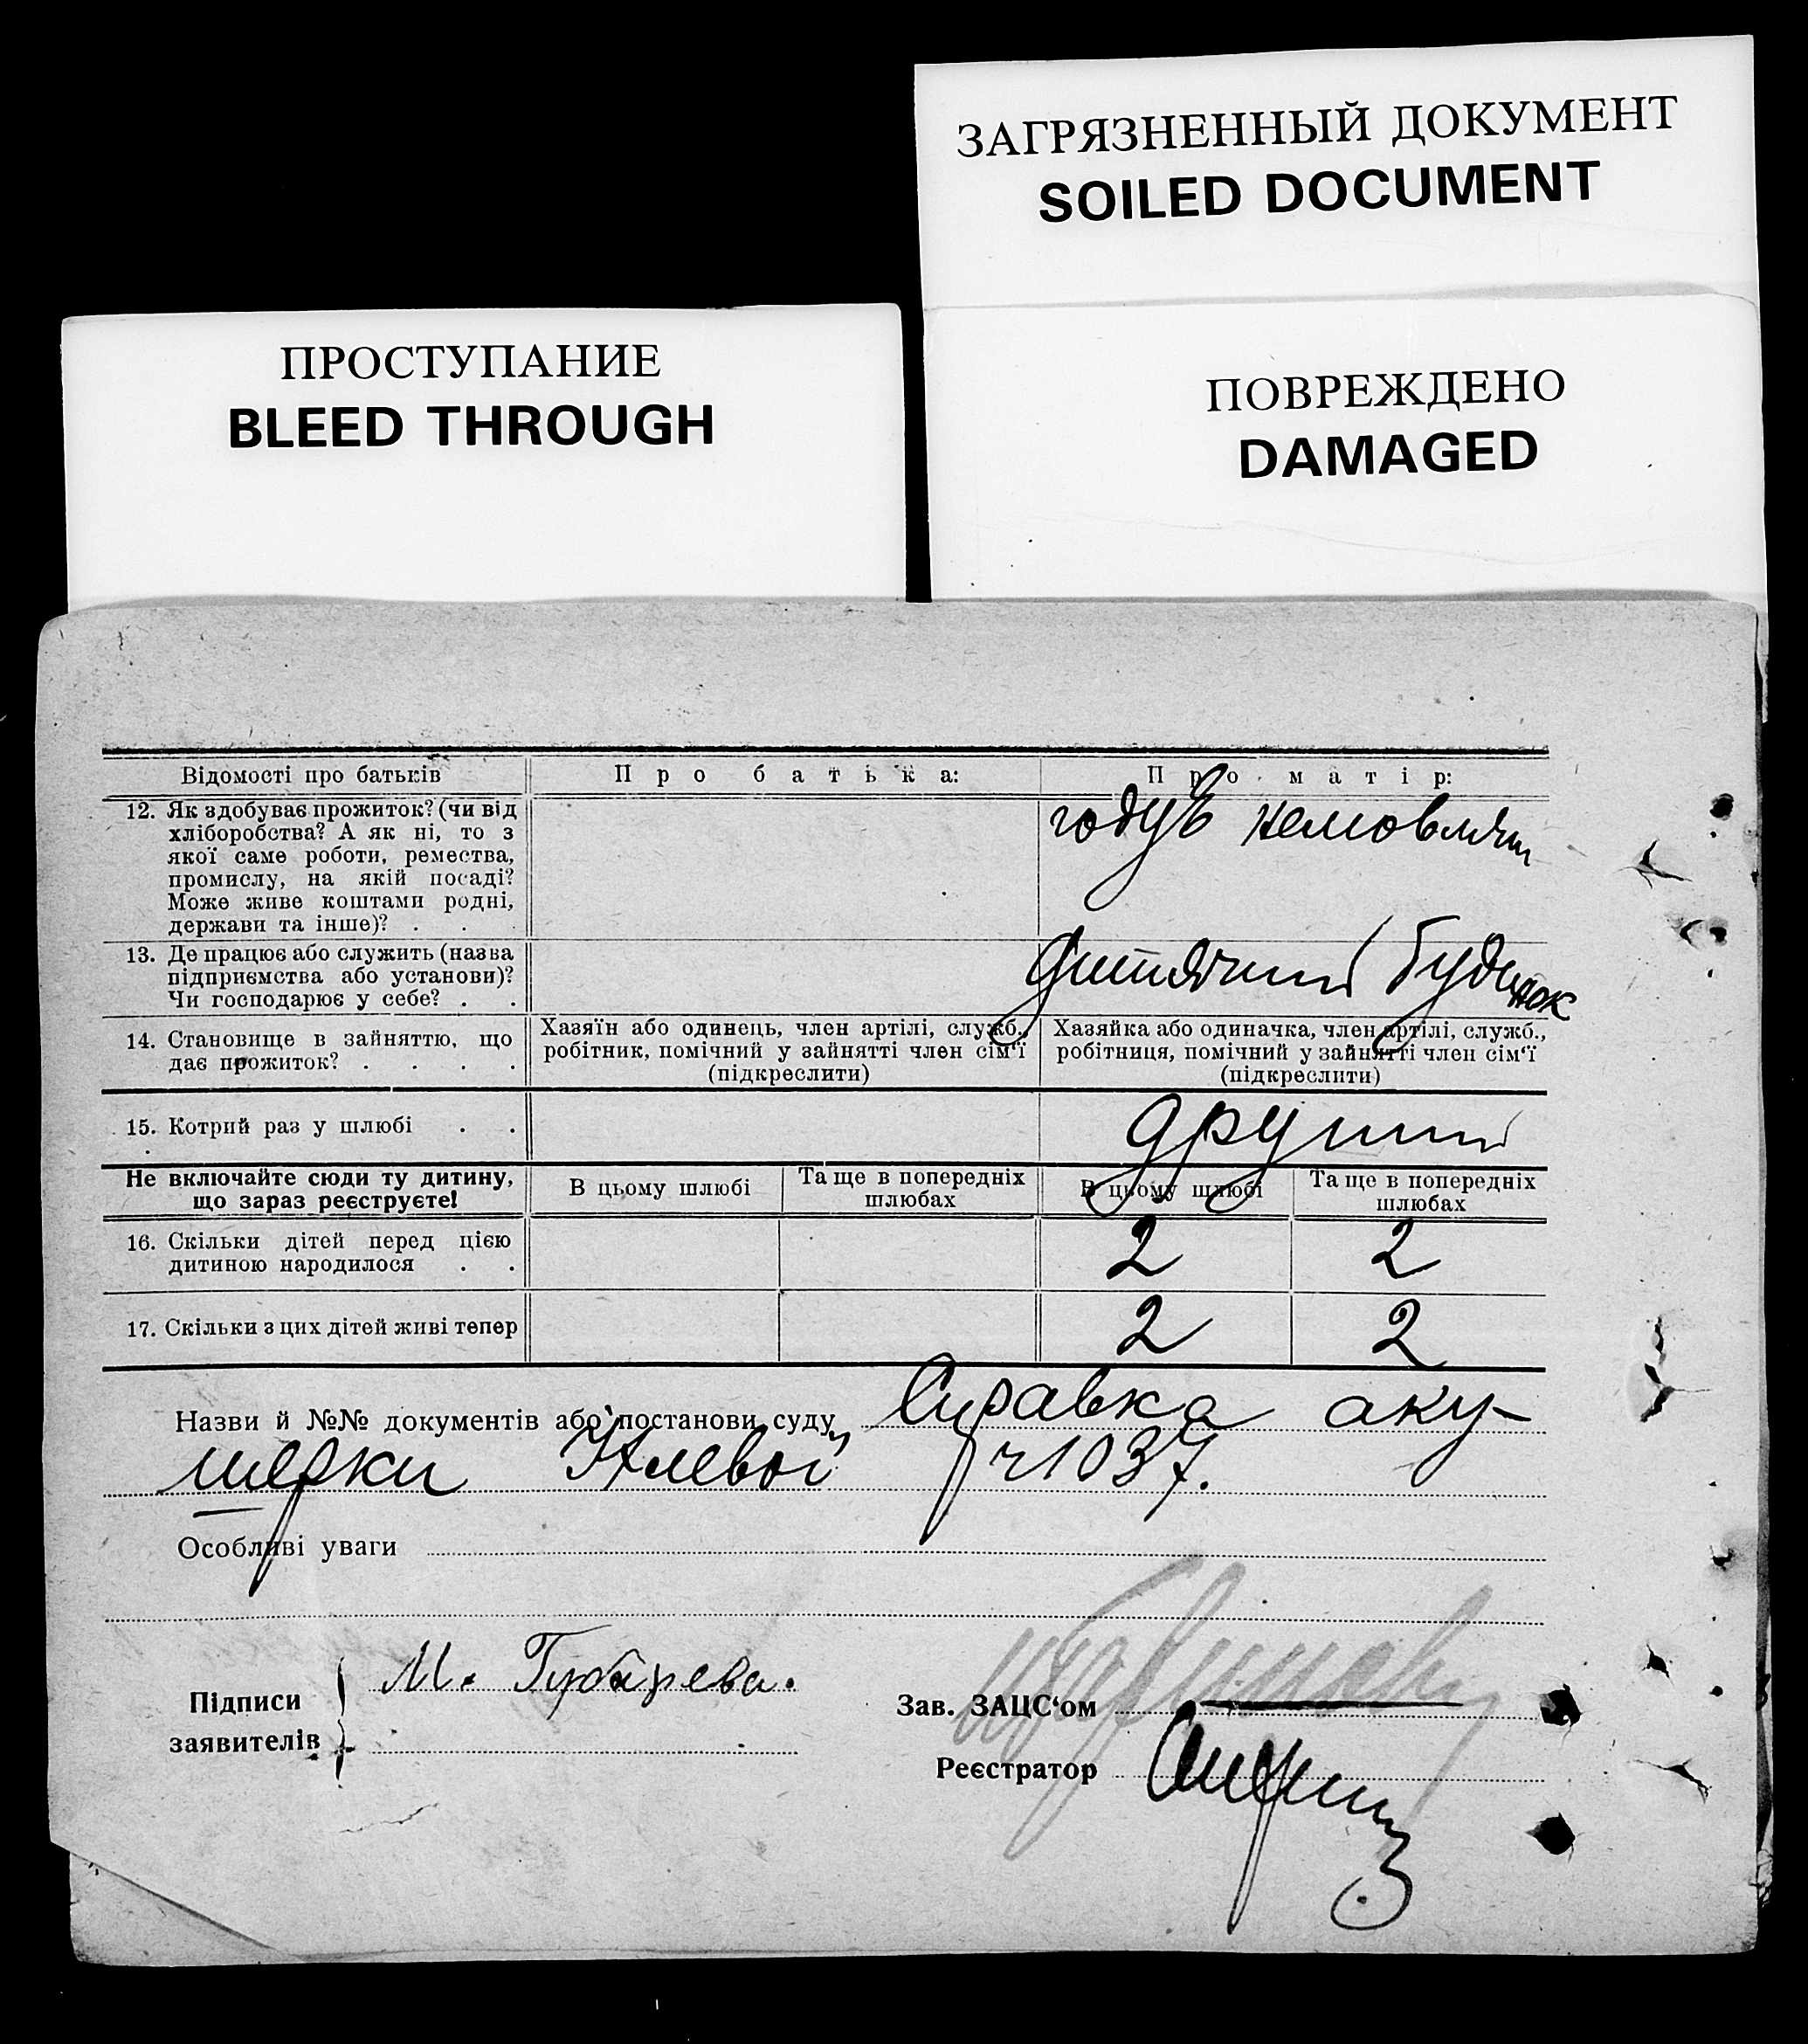 ЗАГРЯЗНЕННЫЙ ДОКУМЕНТ
SOILED DOCUMENT
ПРОСТУПАНИЕ
BLEED THROUGH
ПОВРЕЖДЕНО
DAMAGED
Відомості про батьків
Про батька:
Про матір:
12. Як здобуває прожиток? (чи від
хліборобства? А як ні, то з
якої саме роботи, ремества,
промислу, на якій посаді?
Може живе коштами родні,
держави та інше)? . .
годує немовляти
13. Де працює або служить (назва
підприємства або установи)?
Чи господарює у себе? . .
Дитячий будинок
14. Становище в зайняттю, що
дає прожиток? . . . .
Хазяїн або одинець, член артілі, служб.,
робітник, помічний у зайнятті член сім'ї
(підкреслити)
Хазяйка або одиначка, член артілі, служб.,
робітниця, помічний у зайнятті член сім'ї
(підкреслити)
15. Котрий раз у шлюбі . .
другий
Не включайте сюди ту дитину,
що зараз реєструєте!
В цьому шлюбі
Та ще в попередніх
шлюбах
В цьому шлюбі
Та ще в попередніх
шлюбах
16. Скільки дітей перед цією
дитиною народилося . .
2 2
17. Скільки з цих дітей живі тепер
2 2
Назви й №№ документів або постанови суду Справка аку-
шерки ч 1037.
Особливі уваги
Підписи
заявителів
М. Губарева.
Зав. ЗАЦС'ом
Реєстратор